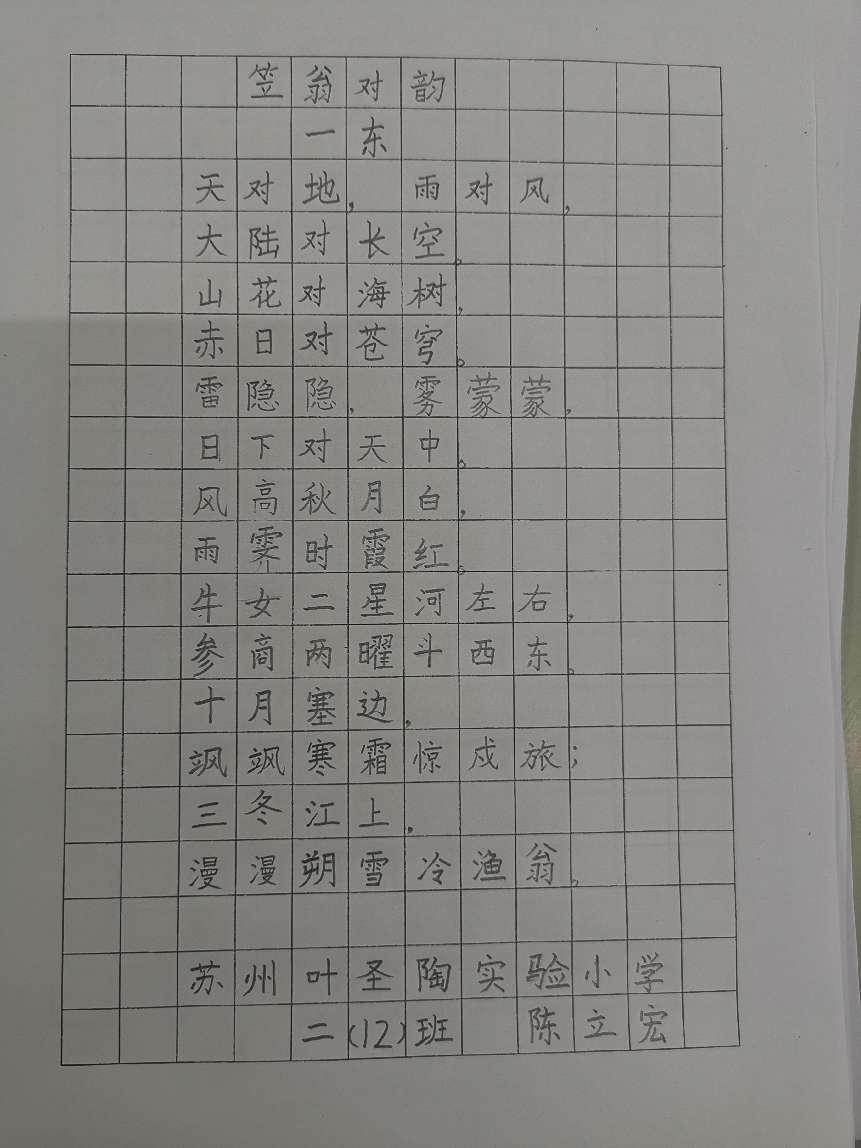 笠翁对韵
一东
天对地,雨对风,
大陆对长空。
山花对海树,
赤日对苍穹。
雷隐隐,雾蒙蒙,
日下对天中。
风高秋月白,
雨霁时霞红。
牛女二星河左右,
参商两曜斗西东。
十月塞边,
飒飒寒霜惊戍旅;
三冬江上,
漫漫朔雪冷渔翁。
苏州叶圣陶实验小学
二(12)班 陈立宏